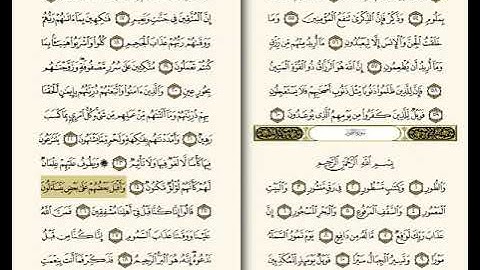 بِمَلُومٍ ٥٤ وَذَكِّرْ فَإِنَّ ٱلذِّكْرَىٰ تَنفَعُ ٱلْمُؤْمِنِينَ ٥٥ وَمَا
خَلَقْتُ ٱلْجِنَّ وَٱلْإِنسَ إِلَّا لِيَعْبُدُونِ ٥٦ مَآ أُرِيدُ مِنْهُم مِّن رِّزْقٍ
وَمَآ أُرِيدُ أَن يُطْعِمُونِ ٥٧ إِنَّ ٱللَّهَ هُوَ ٱلرَّزَّاقُ ذُو ٱلْقُوَّةِ ٱلْمَتِينُ
٥٨ فَإِنَّ لِلَّذِينَ ظَلَمُوا۟ ذَنُوبًا مِّثْلَ ذَنُوبِ أَصْحَٰبِهِمْ فَلَا يَسْتَعْجِلُونِ
٥٩ فَوَيْلٌ لِّلَّذِينَ كَفَرُوا۟ مِن يَوْمِهِمُ ٱلَّذِى يُوعَدُونَ ٦٠
سورة الطور
بِسْمِ ٱللَّهِ ٱلرَّحْمَٰنِ ٱلرَّحِيمِ
وَٱلطُّورِ ١ وَكِتَٰبٍ مَّسْطُورٍ ٢ فِى رَقٍّ مَّنشُورٍ ٣ وَٱلْبَيْتِ
ٱلْمَعْمُورِ ٤ وَٱلسَّقْفِ ٱلْمَرْفُوعِ ٥ وَٱلْبَحْرِ ٱلْمَسْجُورِ ٦ إِنَّ
عَذَابَ رَبِّكَ لَوَٰقِعٌ ٧ مَّا لَهُۥ مِن دَافِعٍ ٨ يَوْمَ تَمُورُ ٱلسَّمَآءُ
مَوْرًا ٩ وَتَسِيرُ ٱلْجِبَالُ سَيْرًا ١٠ فَوَيْلٌ يَوْمَئِذٍ لِّلْمُكَذِّبِينَ
إِنَّ ٱلْمُتَّقِينَ فِى جَنَّٰتٍ وَنَعِيمٍ ١٧ فَٰكِهِينَ بِمَآ ءَاتَىٰهُمْ رَبُّهُمْ
وَوَقَىٰهُمْ رَبُّهُمْ عَذَابَ ٱلْجَحِيمِ ١٨ كُلُوا۟ وَٱشْرَبُوا۟ هَنِيٓـًٔۢا بِمَا
كُنتُمْ تَعْمَلُونَ ١٩ مُتَّكِـِٔينَ عَلَىٰ سُرُرٍ مَّصْفُوفَةٍ وَزَوَّجْنَٰهُم
بِحُورٍ عِينٍ ٢٠ وَٱلَّذِينَ ءَامَنُوا۟ وَٱتَّبَعَتْهُمْ ذُرِّيَّتُهُم بِإِيمَٰنٍ أَلْحَقْنَا
بِهِمْ ذُرِّيَّتَهُمْ وَمَآ أَلَتْنَٰهُم مِّنْ عَمَلِهِم مِّن شَىْءٍ كُلُّ ٱمْرِئٍۭ بِمَا كَسَبَ
رَهِينٌ ٢١ وَأَمْدَدْنَٰهُم بِفَٰكِهَةٍ وَلَحْمٍ مِّمَّا يَشْتَهُونَ ٢٢ يَتَنَٰزَعُونَ
فِيهَا كَأْسًا لَّا لَغْوٌ فِيهَا وَلَا تَأْثِيمٌ ٢٣ ۞ وَيَطُوفُ عَلَيْهِمْ غِلْمَانٌ
لَّهُمْ كَأَنَّهُمْ لُؤْلُؤٌ مَّكْنُونٌ ٢٤ وَأَقْبَلَ بَعْضُهُمْ عَلَىٰ بَعْضٍ يَتَسَآءَلُونَ
٢٥ قَالُوٓا۟ إِنَّا كُنَّا قَبْلُ فِىٓ أَهْلِنَا مُشْفِقِينَ ٢٦ فَمَنَّ ٱللَّهُ
عَلَيْنَا وَوَقَىٰنَا عَذَابَ ٱلسَّمُومِ ٢٧ إِنَّا كُنَّا مِن قَبْلُ
نَدْعُوهُ إِنَّهُۥ هُوَ ٱلْبَرُّ ٱلرَّحِيمُ ٢٨ فَذَكِّرْ فَمَآ أَنتَ بِنِعْمَتِ